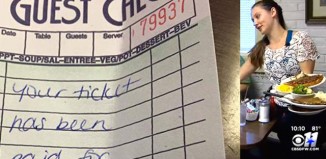 GUEST CHECK
79937
Date Table Guests Server
APPT-SOUP/SAL-ENTREE-VEG/POT-DESSERT-BEV
your ticket
has been
paid for
10:10 84°
CBS 11
CBSDFW.COM